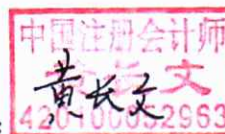 中国注册会计师
黄长文
420100052963